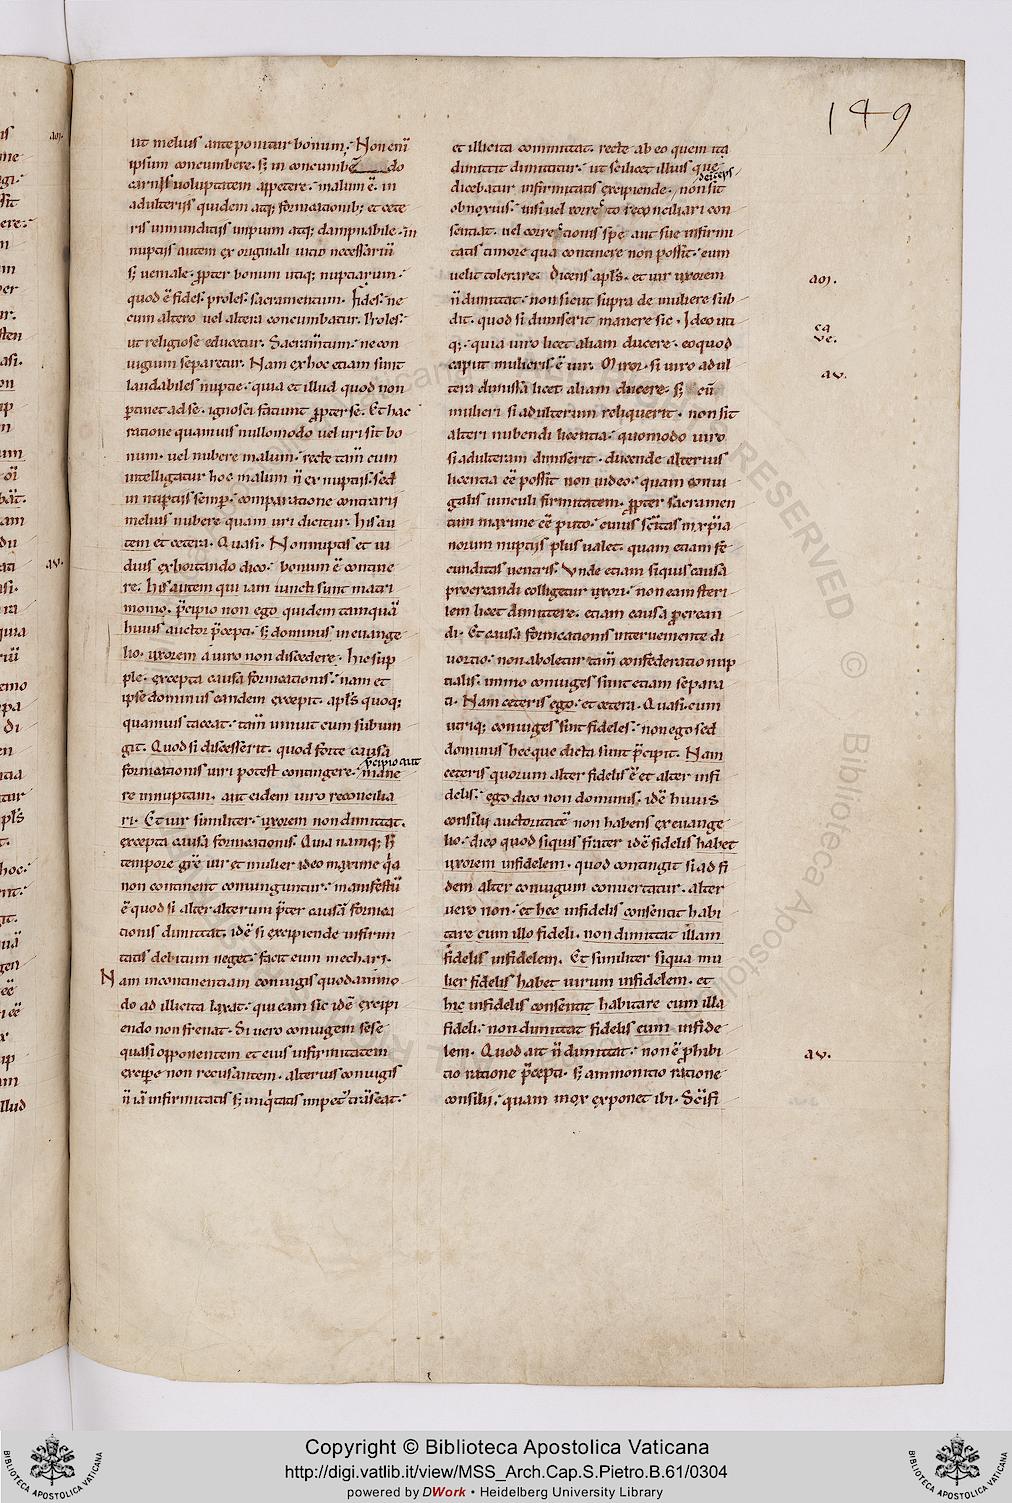 149
ut melius anteponitur bonum. Non enī
ipsum concumbere. s; in concumbē do
carnis uoluptatem appetere. malum ē. in
adulteriis quidem atq; fornicationib; et cete
ris inmunditiis impium atq; dampnabile. in
nuptiis autem ex originali uitio necessariū
s; ueniale. ꝓpter bonum utiq; nuptiarum.
quod ē fides. proles. sacramentum. Fides. ne
cum altero uel altera concumbatur. Proles.
ut religiose educetur. Sacramtum. ne con
iugium separetur. Nam ex hoc etiam sunt
laudabiles nuptie. quia et illud quod non
ꝑtinet ad se. ignosci faciunt ꝓpter se. Et hac
ratione quamuis nullomodo uel uri sit bo
num. uel nubere malum. recte tam̄ cum
intelligatur hoc malum n̄ ex nuptiis. sed
in nuptiis semꝑ. comparatione contrarii
melius nubere quam uri dicitur. His au
tem et cetera. Quasi. Non nuptis et ui
duis exhortando dico. bonum ē contine
re. his autem qui iam iuncti sunt matri
monio. p̄cipio non ego quidem tamquā
huius auctor p̄cepti. s; dominus in euange
lio. uxorem a uiro non discedere. hic sup
ple. excepta causa fornicationis. nam et
ipse dominus eandem excepit. apl̄s quoq;
quamuis taceat. tam̄ innuit cum subiun
git. Quod si discesserit. quod forte causa
p̄cipio aut
fornicationis uiri potest contingere. mane
re innuptam. aut eidem uiro reconcilia
ri. Et uir similiter. uxorem non dimittat.
excepta causa fornicationis. Quia namq; h̄
tempore gr̄e uir et mulier ideo maxime q̄a
non continent coniunguntur. manifestū
ē quod si alter alterum p̄ter causā fornica
tionis dimittat. idē si excipiende infirmi
tatis debitum neget. facit eum mechari.
Nam incontinentiam coniugis quodammo
do ad illicita laxat. qui eam sic idē excipi
endo non frenat. Si uero coniugem sese
quasi opponentem et eius infirmitatem
exciꝑe non recusantem. alterius coniugis
n̄ iā infirmitatis s; iniq̄tatis impet trāseat.
et illicita committat. recte ab eo quem ita
dimittit dimittitur. ut scilicet illius que
dicebatur infirmitatis excipiende. non sit
obnoxius. nisi uel correcto reconciliari con
sentiat. uel correctionis spe aut sue infirmi
tatis timore qua continere non possit. eum
uelit tolerare. Dicens apl̄s. et uir uxorem
n̄ dimittat. non sicut supra de muliere sub
dit. quod si dimiserit manere sic. Ideo uti
q;. quia uiro licet aliam ducere. eo quod
caput mulieris ē uir. Miror. si uiro adul
tera dimissa licet aliam ducere. s; cū
mulieri si adulterum reliquerit. non sit
alteri nubendi licentia. quomodo uiro
si adulteram dimiserit. ducende alterius
licentia eē possit non uideo. quam coniu
galis uinculi firmitatem. ꝓpter sacramen
tum maxime eē puto. cuius sc̄itas in xp̄ia
norum nuptiis plus ualet. quam etiam fe
cunditas uentris. Vnde etiam siquis causa
procreandi colligetur uxori. non eam steri
lem licet dimittere. etiam causa ꝓcrean
di. Et causa fornicationis interueniente di
uortio. non aboletur tam̄ confederatio nup
tialis. immo coniuges sunt etiam separa
ti. Nam ceteris ego. et cetera. Quasi. cum
utriq; coniuges sint fideles. non ego sed
dominus hec que dicta sunt p̄cipit. Nam
ceteris quorum alter fidelis ē et alter infi
delis. ego dico non dominus. idē huius
consilii auctoritatē non habens ex euange
lio. dico quod siquis frater idē fidelis habet
uxorem infidelem. quod contingit si ad fi
dem alter coniugum conuertatur. alter
uero non. et hec infidelis consentit habi
tare cum illo fideli. non dimittat illam
fidelis infidelem. Et similiter siqua mu
lier fidelis habet uirum infidelem. et
hic infidelis consentit habitare cum illa
fideli. non dimittat fidelis eum infide
lem. Quod ait n̄ dimittat. non ē ꝓhibi
tio ratione p̄cepti. s; ammonitio ratione
consilii. quam mox exponet ibi. Sc̄ifi
av.
av.
Copyright © Biblioteca Apostolica Vaticana
http://digi.vatlib.it/view/MSS_Arch.Cap.S.Pietro.B.61/0304
powered by DWork • Heidelberg University Library
BIBLIOTECA APOSTOLICA VATICANA
BIBLIOTECA APOSTOLICA VATICANA